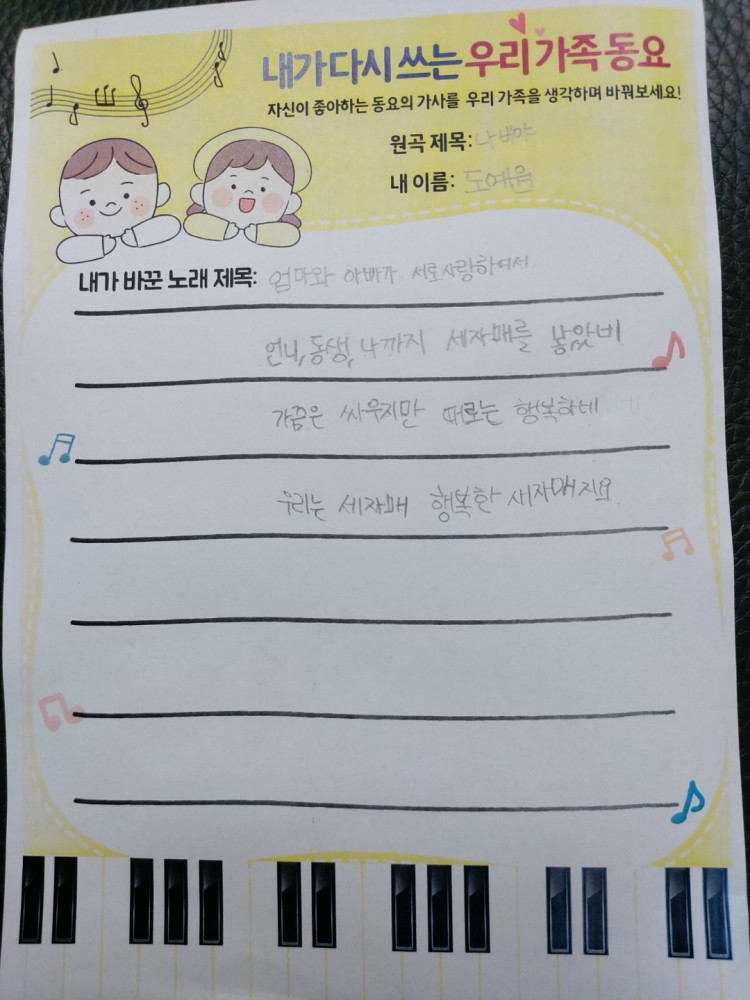 내가 다시 쓰는 우리 가족 동요
자신이 좋아하는 동요의 가사를 우리 가족을 생각하며 바꿔보세요!
원곡 제목: 나비야
내 이름: 도예원
내가 바꾼 노래 제목: 엄마와 아빠가 서로사랑하여서
언니,동생,나까지 세자매를 낳았네
가끔은 싸우지만 때로는 행복하네
우리는 세자매 행복한 세자매지요